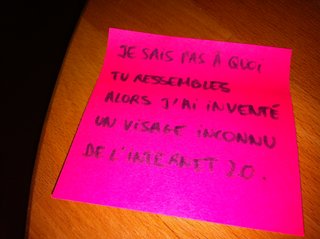 JE SAIS PAS À QUOI
TU RESSEMBLES
ALORS J'AI INVENTÉ
UN VISAGE INCONNU
DE L'INTERNET 2.0.